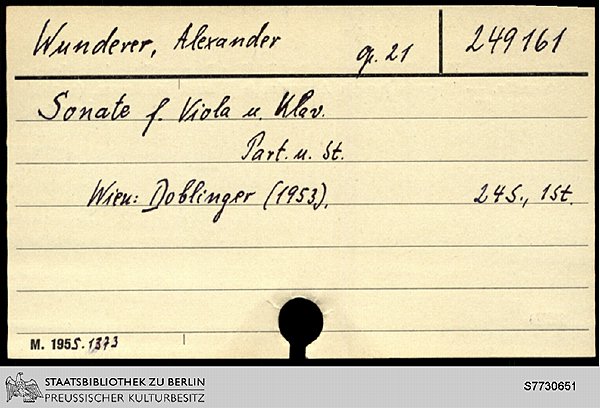 Wunderer, Alexander op. 21 249161
Sonate f. Viola u. Klav.
Part. u. St.
Wien: Doblinger (1953). 24 S., 1 St.
M. 1955.1373
STAATSBIBLIOTHEK ZU BERLIN
PREUSSISCHER KULTURBESITZ
S7730651